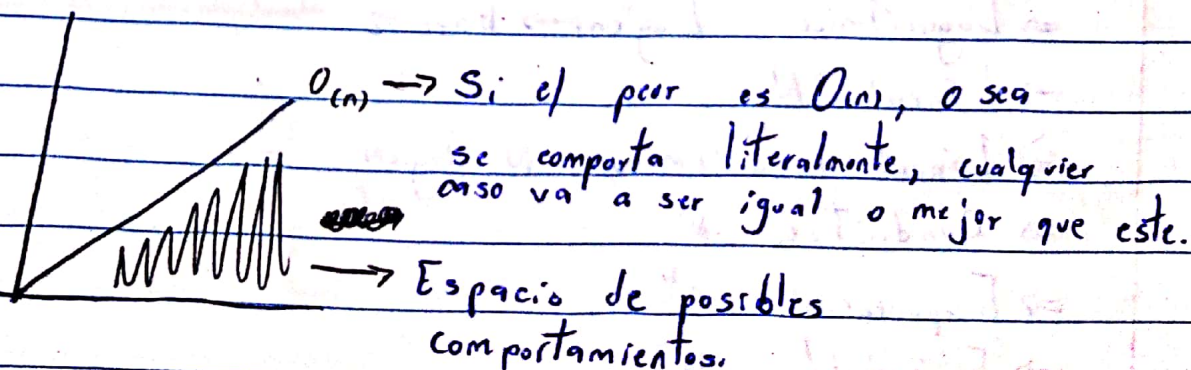 O(n) → Si el peor es O(n), o sea
se comporta literalmente, cualquier
caso va a ser igual o mejor que este.
→ Espacio de posibles
comportamientos.